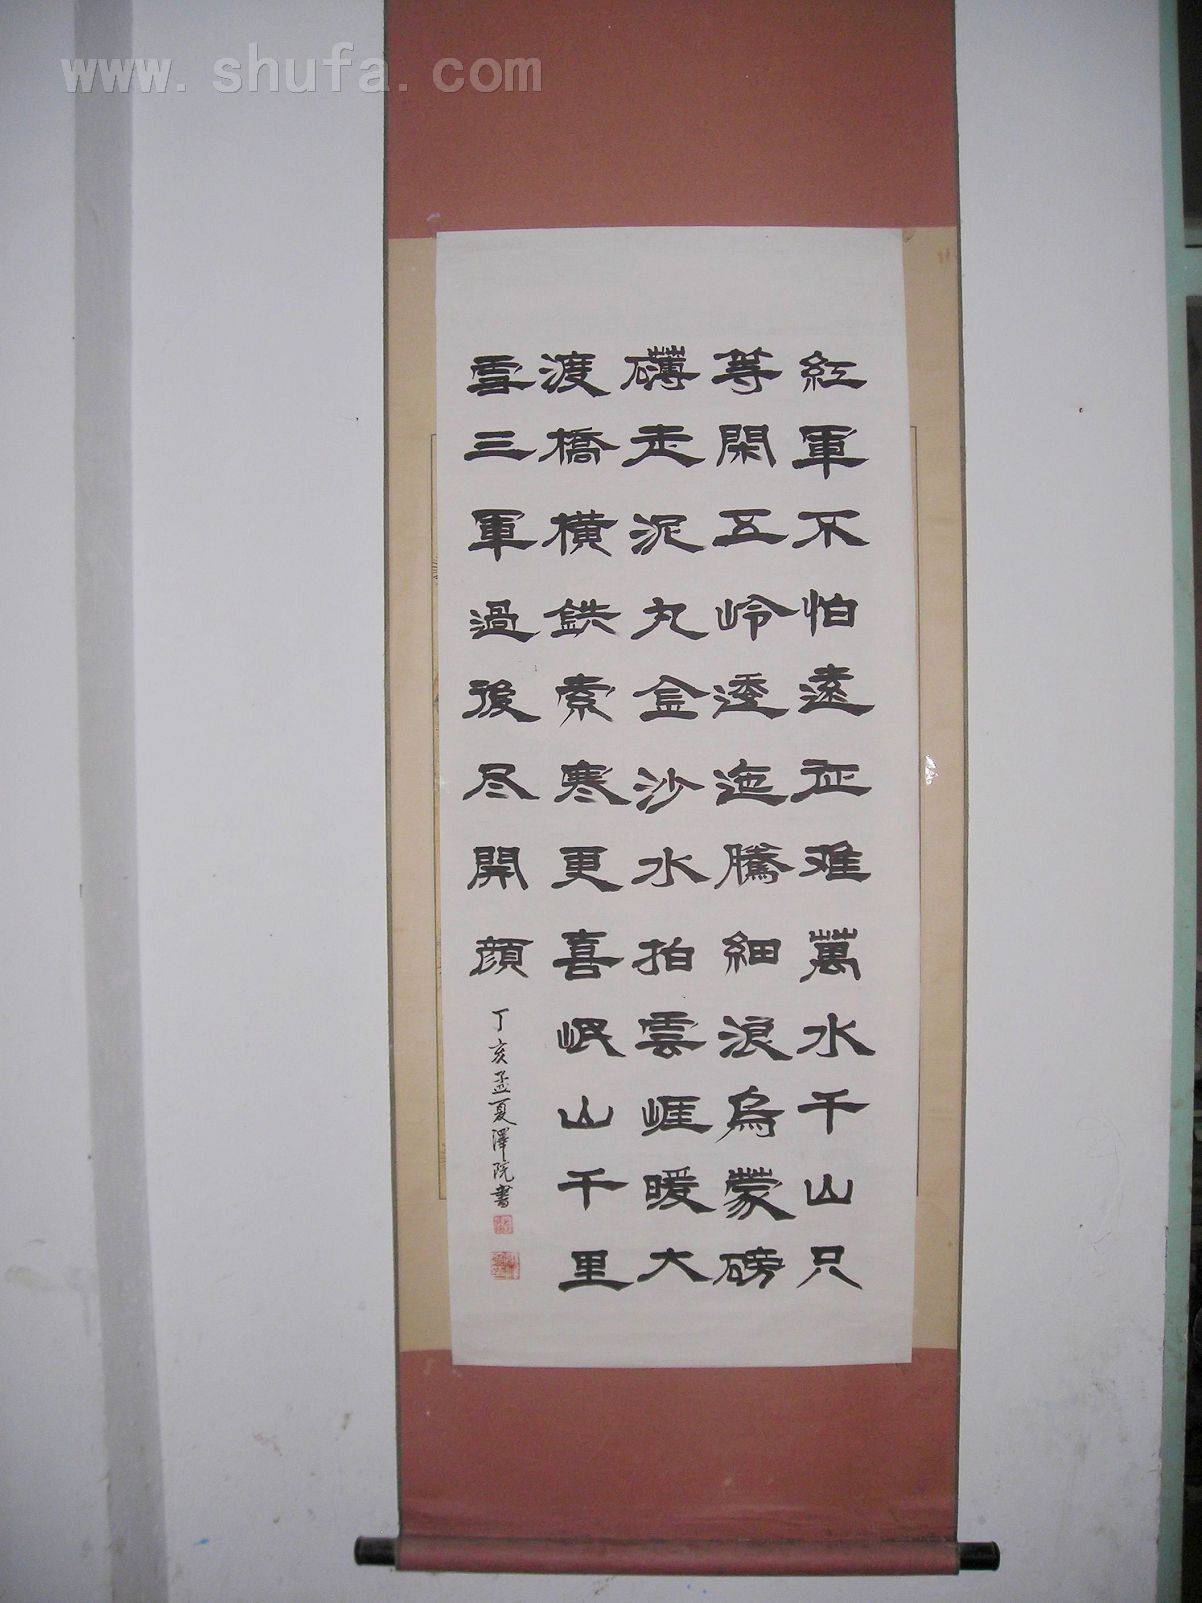 www.shufa.com
紅軍不怕遠征难萬水千山只
等閑五岭逶迤騰細浪烏蒙磅
礴走泥丸金沙水拍雲崕暖大
渡橋橫鉄索寒更喜岷山千里
雪三軍過後尽開顔
丁亥孟夏澤院書